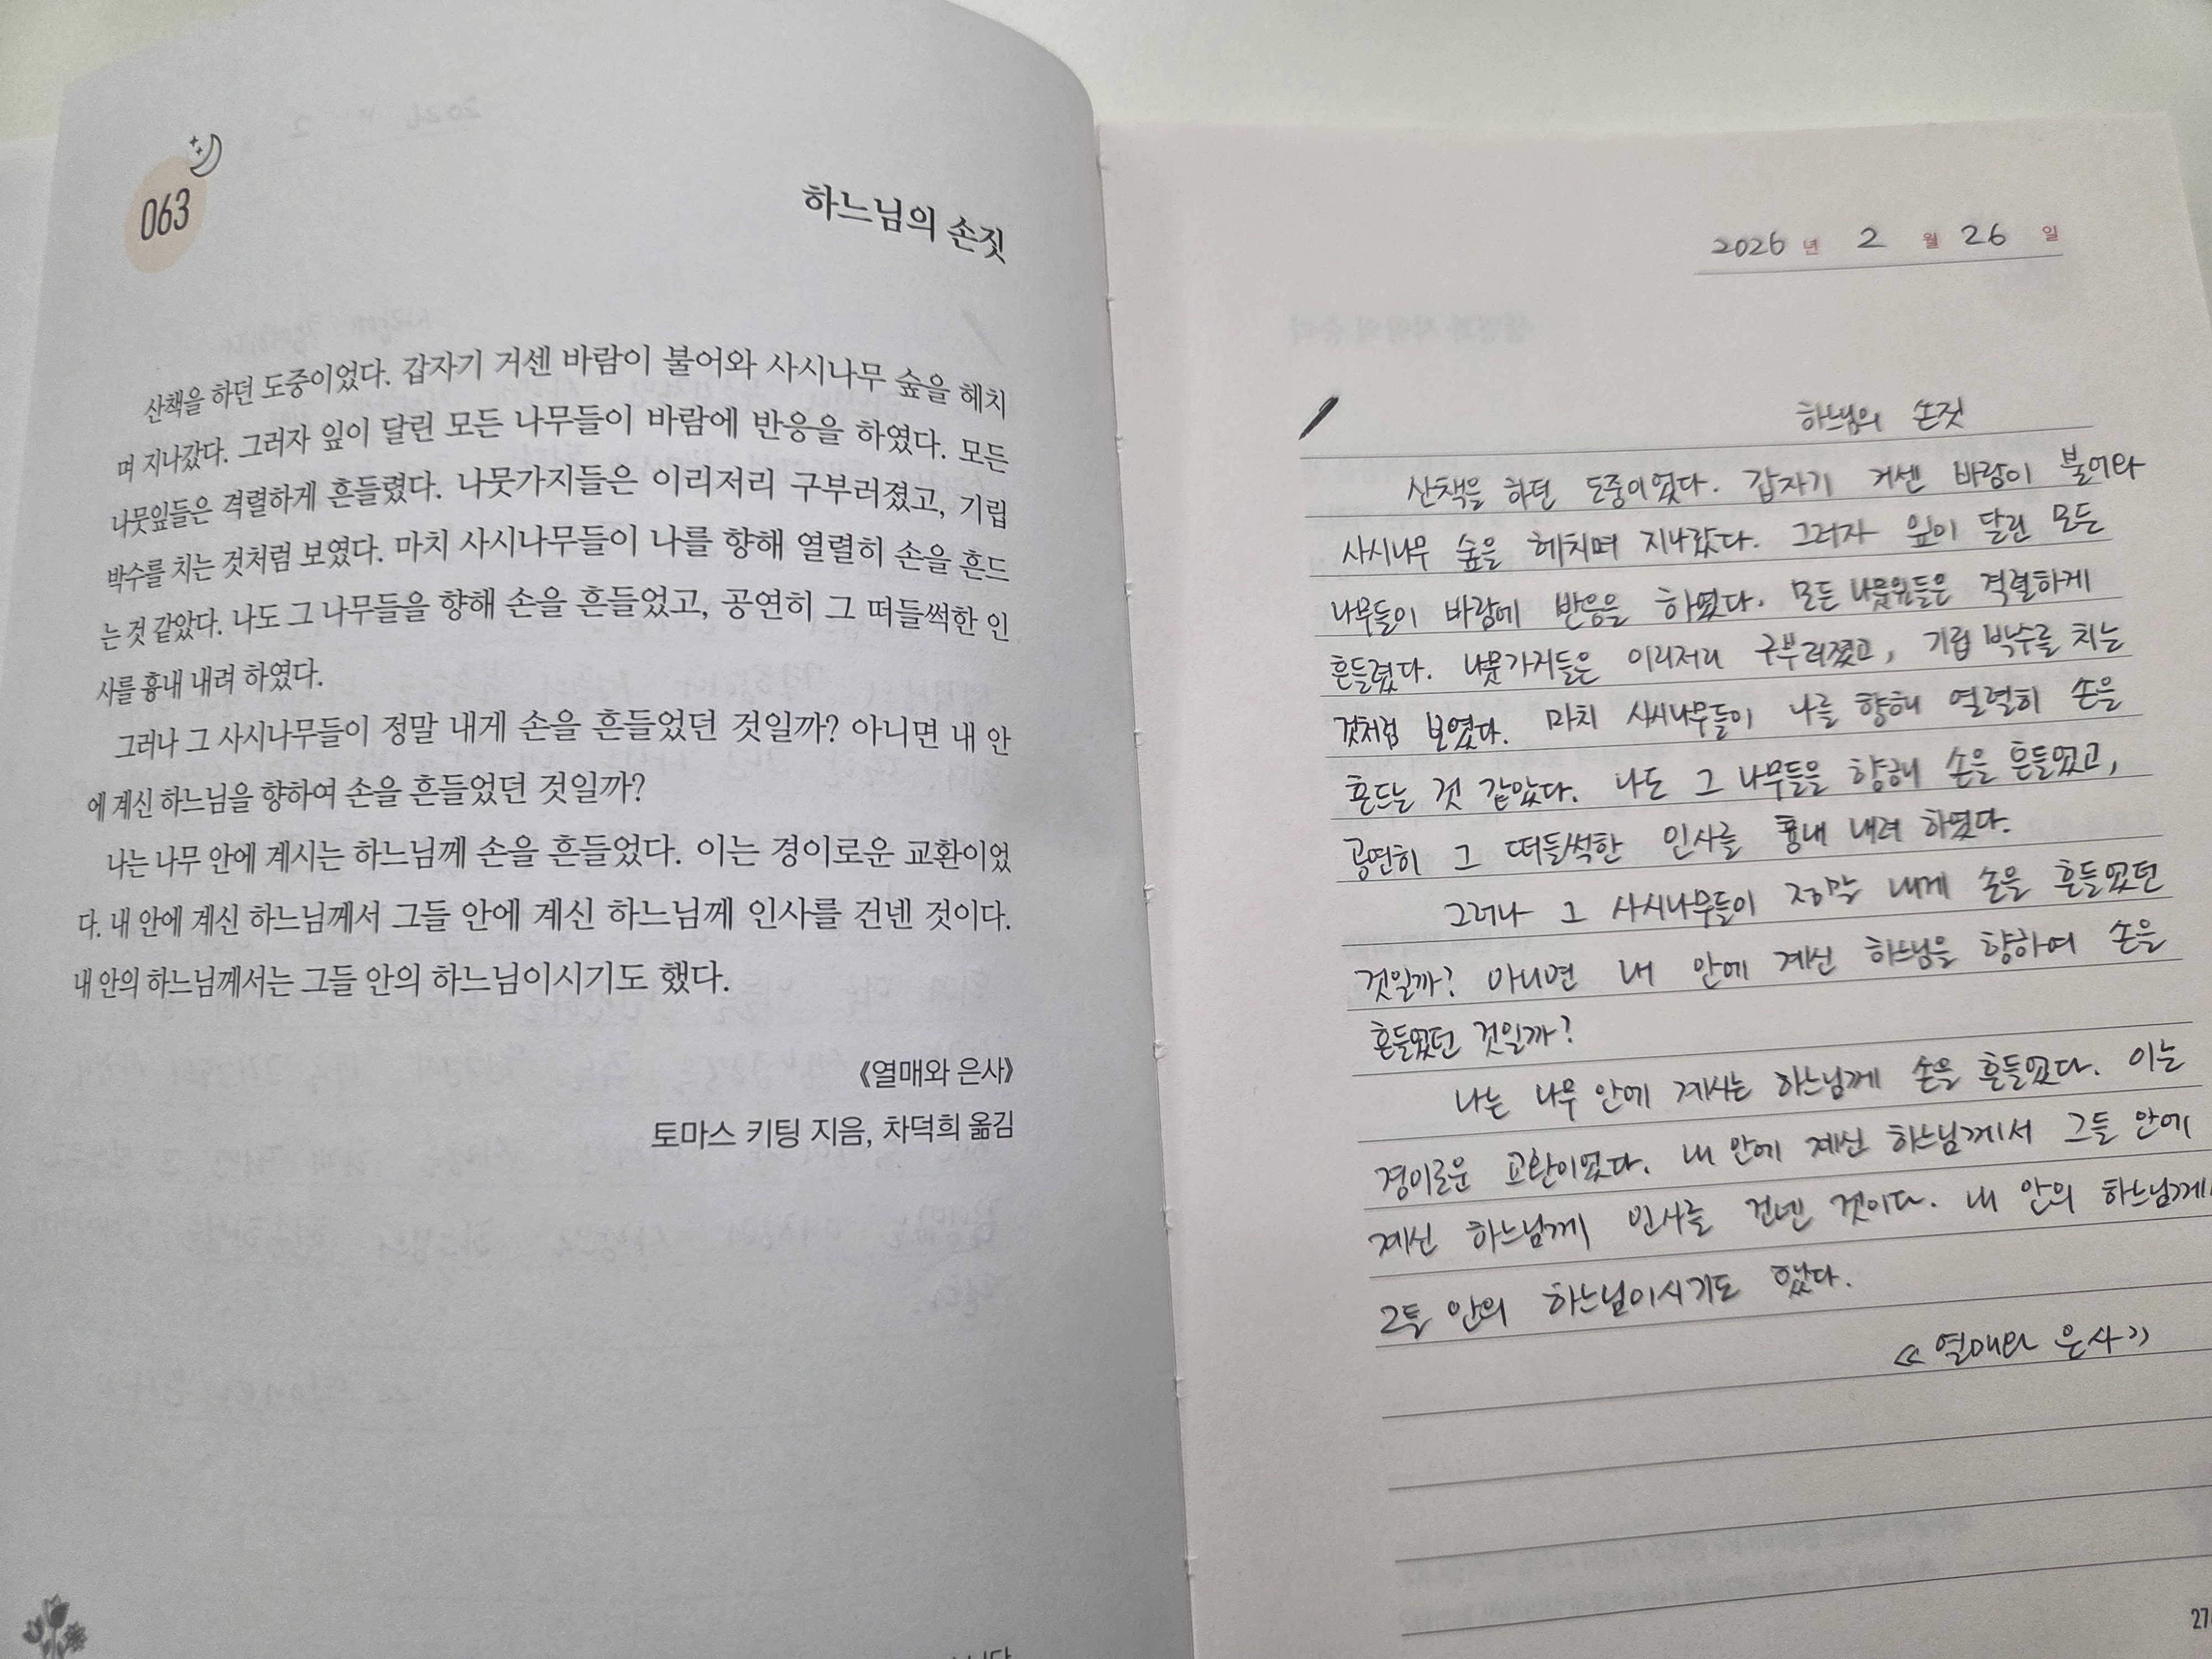 063
하느님의 손짓
산책을 하던 도중이었다. 갑자기 거센 바람이 불어와 사시나무 숲을 헤치
며 지나갔다. 그러자 잎이 달린 모든 나무들이 바람에 반응을 하였다. 모든
나뭇잎들은 격렬하게 흔들렸다. 나뭇가지들은 이리저리 구부러졌고, 기립
박수를 치는 것처럼 보였다. 마치 사시나무들이 나를 향해 열렬히 손을 흔드
는 것 같았다. 나도 그 나무들을 향해 손을 흔들었고, 공연히 그 떠들썩한 인
사를 흉내 내려 하였다.
그러나 그 사시나무들이 정말 내게 손을 흔들었던 것일까? 아니면 내 안
에 계신 하느님을 향하여 손을 흔들었던 것일까?
나는 나무 안에 계시는 하느님께 손을 흔들었다. 이는 경이로운 교환이었
다. 내 안에 계신 하느님께서 그들 안에 계신 하느님께 인사를 건넨 것이다.
내 안의 하느님께서는 그들 안의 하느님이시기도 했다.
《열매와 은사》
토마스 키팅 지음, 차덕희 옮김
2026 년 2 월 26 일
하느님의 손짓
산책을 하던 도중이었다. 갑자기 거센 바람이 불어와
사시나무 숲을 헤치며 지나갔다. 그러자 잎이 달린 모든
나무들이 바람에 반응을 하였다. 모든 나뭇잎들은 격렬하게
흔들렸다. 나뭇가지들은 이리저리 구부러졌고, 기립 박수를 치는
것처럼 보였다. 마치 사시나무들이 나를 향해 열렬히 손을
흔드는 것 같았다. 나도 그 나무들을 향해 손을 흔들었고,
공연히 그 떠들썩한 인사를 흉내 내려 하였다.
그러나 그 사시나무들이 정말 내게 손을 흔들었던
것일까? 아니면 내 안에 계신 하느님을 향하여 손을
흔들었던 것일까?
나는 나무 안에 계시는 하느님께 손을 흔들었다. 이는
경이로운 교환이었다. 내 안에 계신 하느님께서 그들 안에
계신 하느님께 인사를 건넨 것이다. 내 안의 하느님께
그들 안의 하느님이시기도 했다.
《열매와 은사》
27